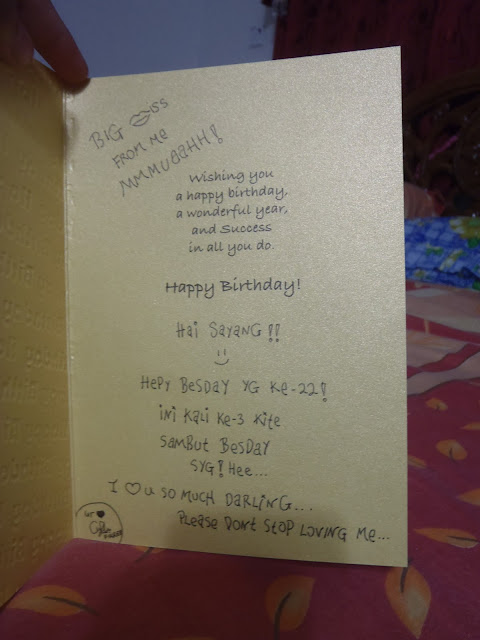 BIG Kiss
FROM ME
MMMUUAHH!
Wishing you
a happy birthday,
a wonderful year,
and Success
in all you do.
Happy Birthday!
Hai SAYANG!!
HePY BeSDAY YG Ke-22!
iNi KALi Ke-3 Kite
SAMBUT BeSDAY
SYG! Hee...
I ♡ U SO MUCH DARLiNG...
PLeASe DONT STOP LOViNG Me...